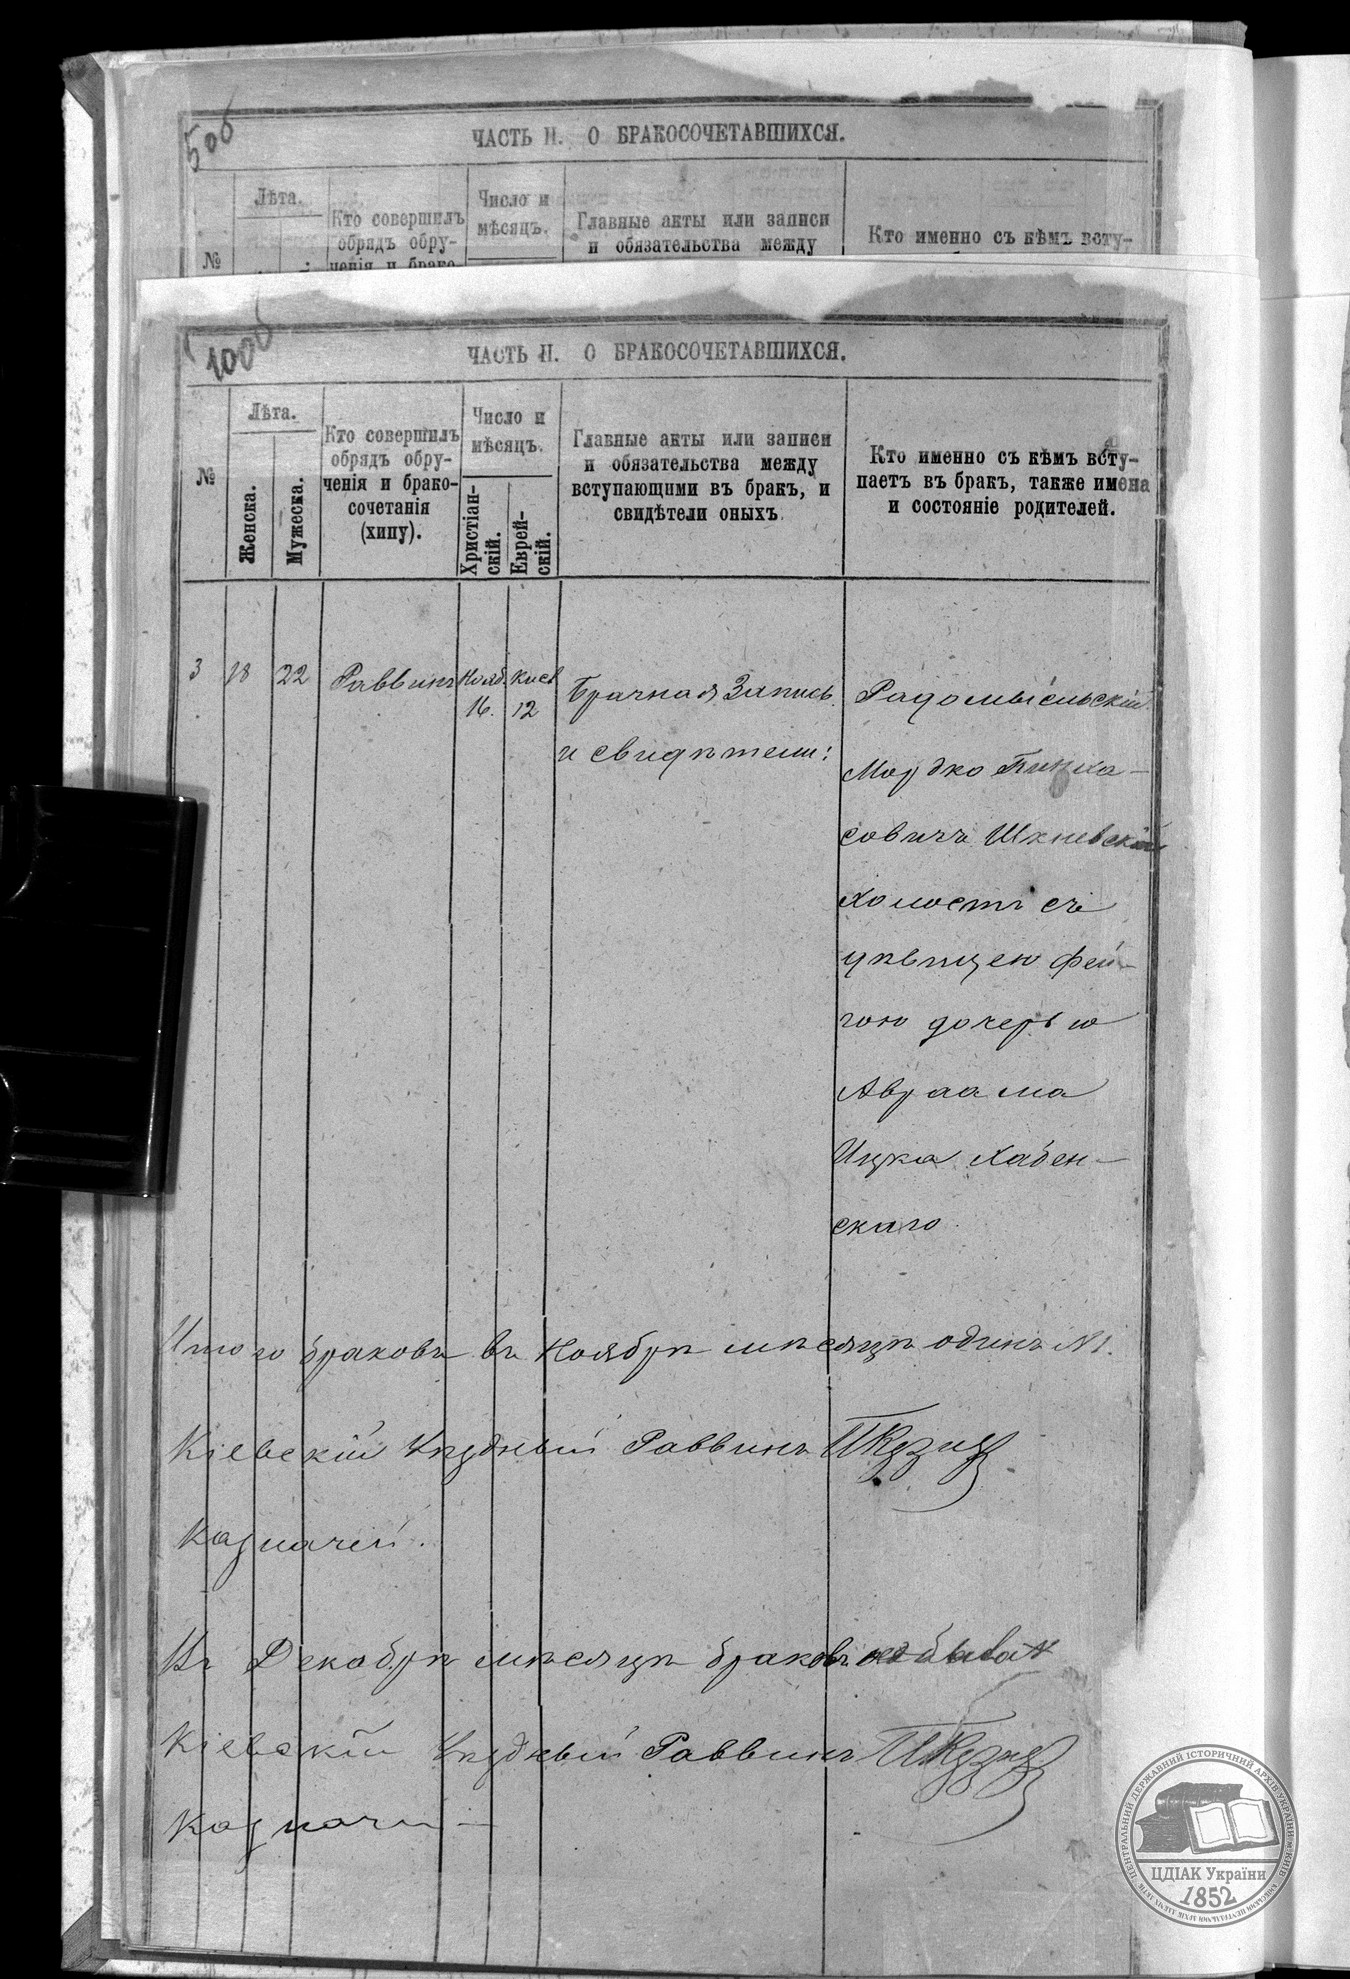 5об
ЧАСТЬ II. О БРАКОСОЧЕТАВШИХСЯ.
№
Лѣта.
Кто совершилъ
обрядъ обру-
ченія и брако-
Число и
мѣсяцъ.
Главные акты или записи
и обязательства между
Кто именно съ кѣмъ всту-
100об
ЧАСТЬ II. О БРАКОСОЧЕТАВШИХСЯ.
№
Лѣта.
Женска.
Мужеска.
Кто совершилъ
обрядъ обру-
ченія и брако-
сочетанія
(хипу).
Число и
мѣсяцъ.
Христіан-
скій.
Еврей-
скій.
Главные акты или записи
и обязательства между
вступающими въ бракъ, и
свидѣтели оныхъ
Кто именно съ кѣмъ всту-
паетъ въ бракъ, также имена
и состояніе родителей.
3
18
22
Раввинъ
Нояб.
16.
Кисл
12
Брачная Запись
и свидѣтели:
Радомысльскій
Мордко Пинха-
совичъ Шкневскій
холостъ съ
дѣвицею Фей-
гою дочерью
Авраама
Ицка Хабен-
скаго.
Итого браковъ въ Ноябрѣ мѣсяцѣ одинъ №1.
Кіевскій Уѣздный Раввинъ
Казначей.
Въ Декабрѣ мѣсяцѣ браковъ не было
Кіевскій Уѣздный Раввинъ
Казначей
ЦЕНТРАЛЬНИЙ ДЕРЖАВНИЙ ІСТОРИЧНИЙ АРХІВ УКРАЇНИ, М.КИЇВ
ЦДІАК України
1852